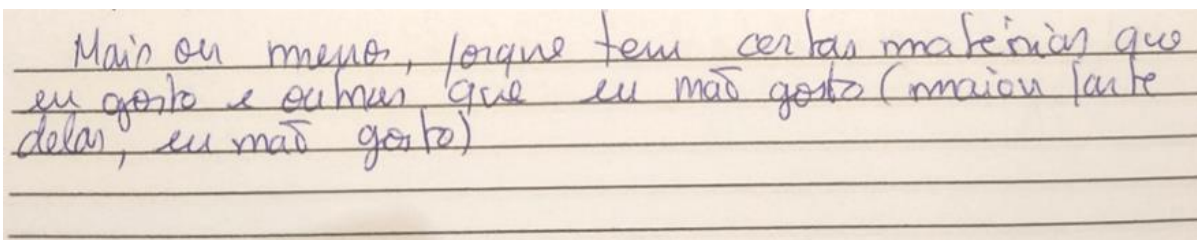 Mais ou menos, porque tem certas matérias que
eu gosto e outras que eu não gosto (maior parte
delas, eu não gosto)